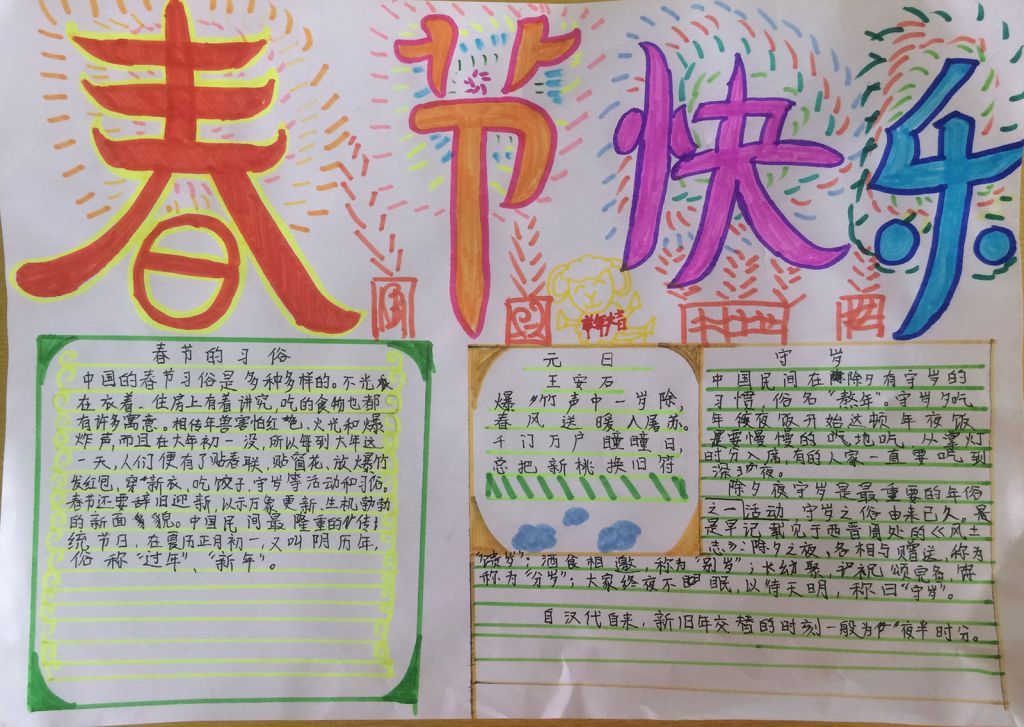 春节快乐
羊年大吉
春节的习俗
中国的春节习俗是多种多样的。不光
在衣着、住房上有着讲究,吃的食物也都
有许多寓意。相传年兽害怕红色,火光和爆
炸声,而且在大年初一没,所以每到大年这
一天,人们便有了贴春联,贴窗花,放爆竹
发红包,穿新衣,吃饺子,守岁等活动和习俗。
春节还要辞旧迎新,以示万象更新,生机勃勃
的新面貌。中国民间最隆重的传
统节日,在夏历正月初一,又叫阴历年,
俗称“过年”、“新年”。
元日
王安石
爆竹声中一岁除,
春风送暖入屠苏。
千门万户曈曈日,
总把新桃换旧符
守岁
中国民间在除夕有守岁的
习惯,俗名“熬年”。守岁夕吃
年夜饭开始这顿年夜饭
是要慢慢的吃地吃,从掌灯
时分入席,有的人家一直要吃到
深夜。
除夕夜守岁是最重要的年俗
之一活动 守岁之俗由来已久。最
是早记载见于西晋周处的《风土
志》:除夕之夜,各相与赠送,称为
“馈岁”;酒食相邀,称为“别岁”;长幼聚,祝颂完备,
称为“分岁”;大家终夜不眠,以待天明,称曰“守岁”。
自汉代自来,新旧年交替的时刻一般为夜半时分。